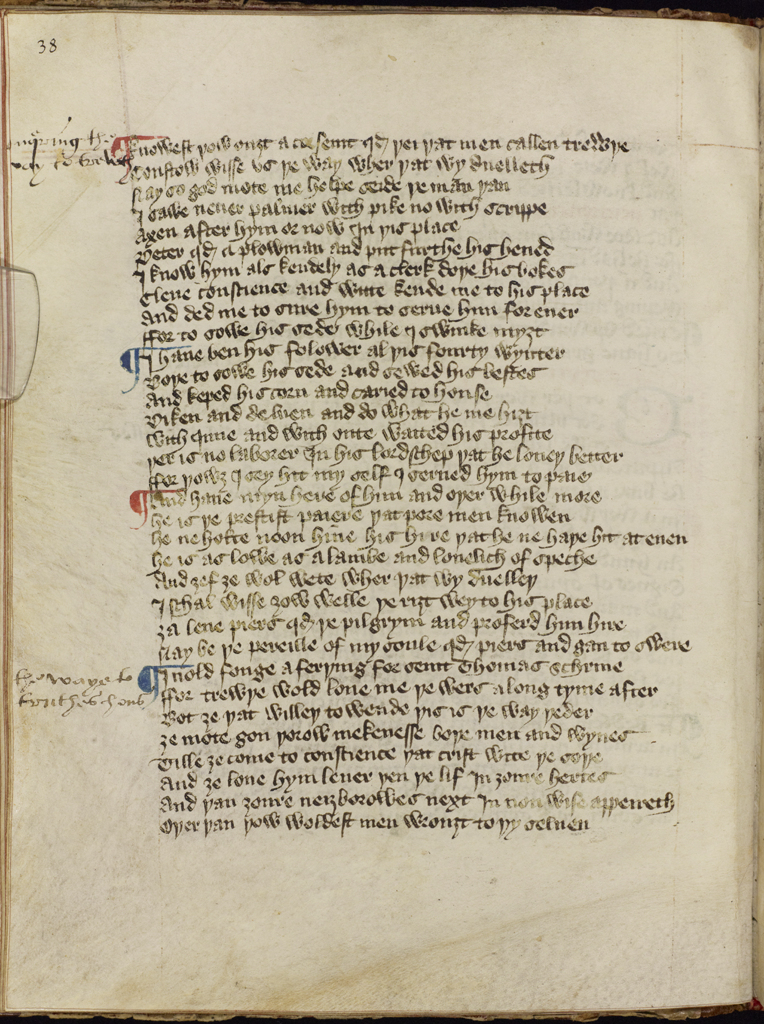 38
enqiring the
way to treuth
Knowest þow ouȝt a corsent qd þei þat men callen trewþe
Constow wisse vs þe way wher þat wy duelleth
Nay so god mote me helpe seide þe man þan
I sawe neuer palmer with pike no with scrippe
Axen after hym or now In þis place
Peter qd a plowman and put furthe his heued
I know hym als kendely as a clerk doþe his bokes
Clene constience and witte kende me to his place
And ded me to sure hym to serue him for euer
ffor to sowe his seder while I swinke myȝt
I haue ben his folower al þis fourty wynter
Boþe to sowe his sede and sewed his bestes
And keped his corn and caried to house
Diken and deluen and do what he me hiȝt
With Inne and with oute waited his profite
þer is no laborer In his lordschep þat he loueþ better
ffor þowȝ I sey hit my self I serued hym to paie
And haue myn here of him and oþer while more
he is þe prestist paiere þat pore men knowen
he ne holte noon hine his hire þat he ne haþe hit at euen
he is as lowe as a lambe and louelich of speche
And ȝef ȝe wol wete wher þat wy duelleþ
I schal wisse ȝow welle þe riȝt wey to his place
ȝa leue piers qd þe pilgrym and proferd him hire
Nay be þe pereille of my soule qd piers and gan to swere
the waye to
truthes hous
I nold fonge a ferþing for seint Thomas schrine
ffor trewþe wold loue me þe wers a long tyme after
Bot ȝe þat willeþ to wende þis is þe way þeder
ȝe mote gon þorow mekenesse boþe men and wyues
Tille ȝe come to constience þat crist witte þe soþe
And ȝe loue hym leuer þen þe lif In ȝoure hertes
And þan ȝoure neiȝborowes next In non wise appeireth
Oþer þan þow woldest men wrouȝt to þy seluen